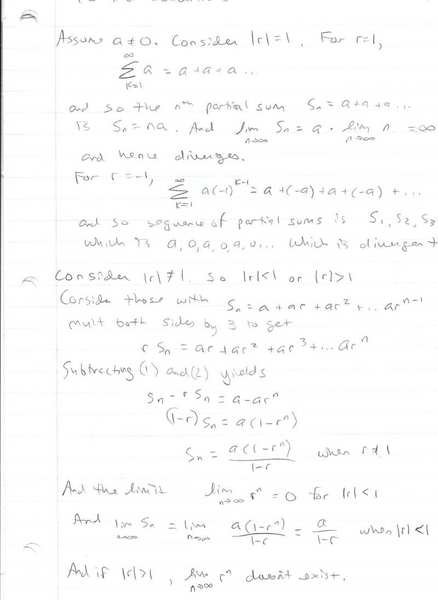 Assume a≠0. Consider |r|=1, For r=1,
∞
∑ a = a+a+a...
K=1
and so the nth partial sum Sₙ = a+a+a...
is Sₙ=na. And lim Sₙ = a · lim n = ∞
n→∞ n→∞
and hence diverges.
For r=-1,
∞
∑ a(-1)ᴷ⁻¹ = a+(-a)+a+(-a)+...
K=1
and so sequence of partial sums is S₁, S₂, S₃
which is a,0,a,0,a,0... which is divergent
Consider |r|≠1, so |r|<1 or |r|>1
Consider those with Sₙ = a+ar+ar²+...arⁿ⁻¹
mult both sides by 3 to get
r Sₙ = ar+ar²+ar³+...arⁿ
Subtracting (1) and (2) yields
Sₙ - r Sₙ = a-arⁿ
(1-r) Sₙ = a(1-rⁿ)
Sₙ = a(1-rⁿ)/1-r when r≠1
And the limit lim rⁿ = 0 for |r|<1
n→∞
And lim Sₙ = lim a(1-rⁿ)/1-r = a/1-r when |r|<1
n→∞ n→∞
And if |r|>1, lim rⁿ doesn't exist.
n→∞